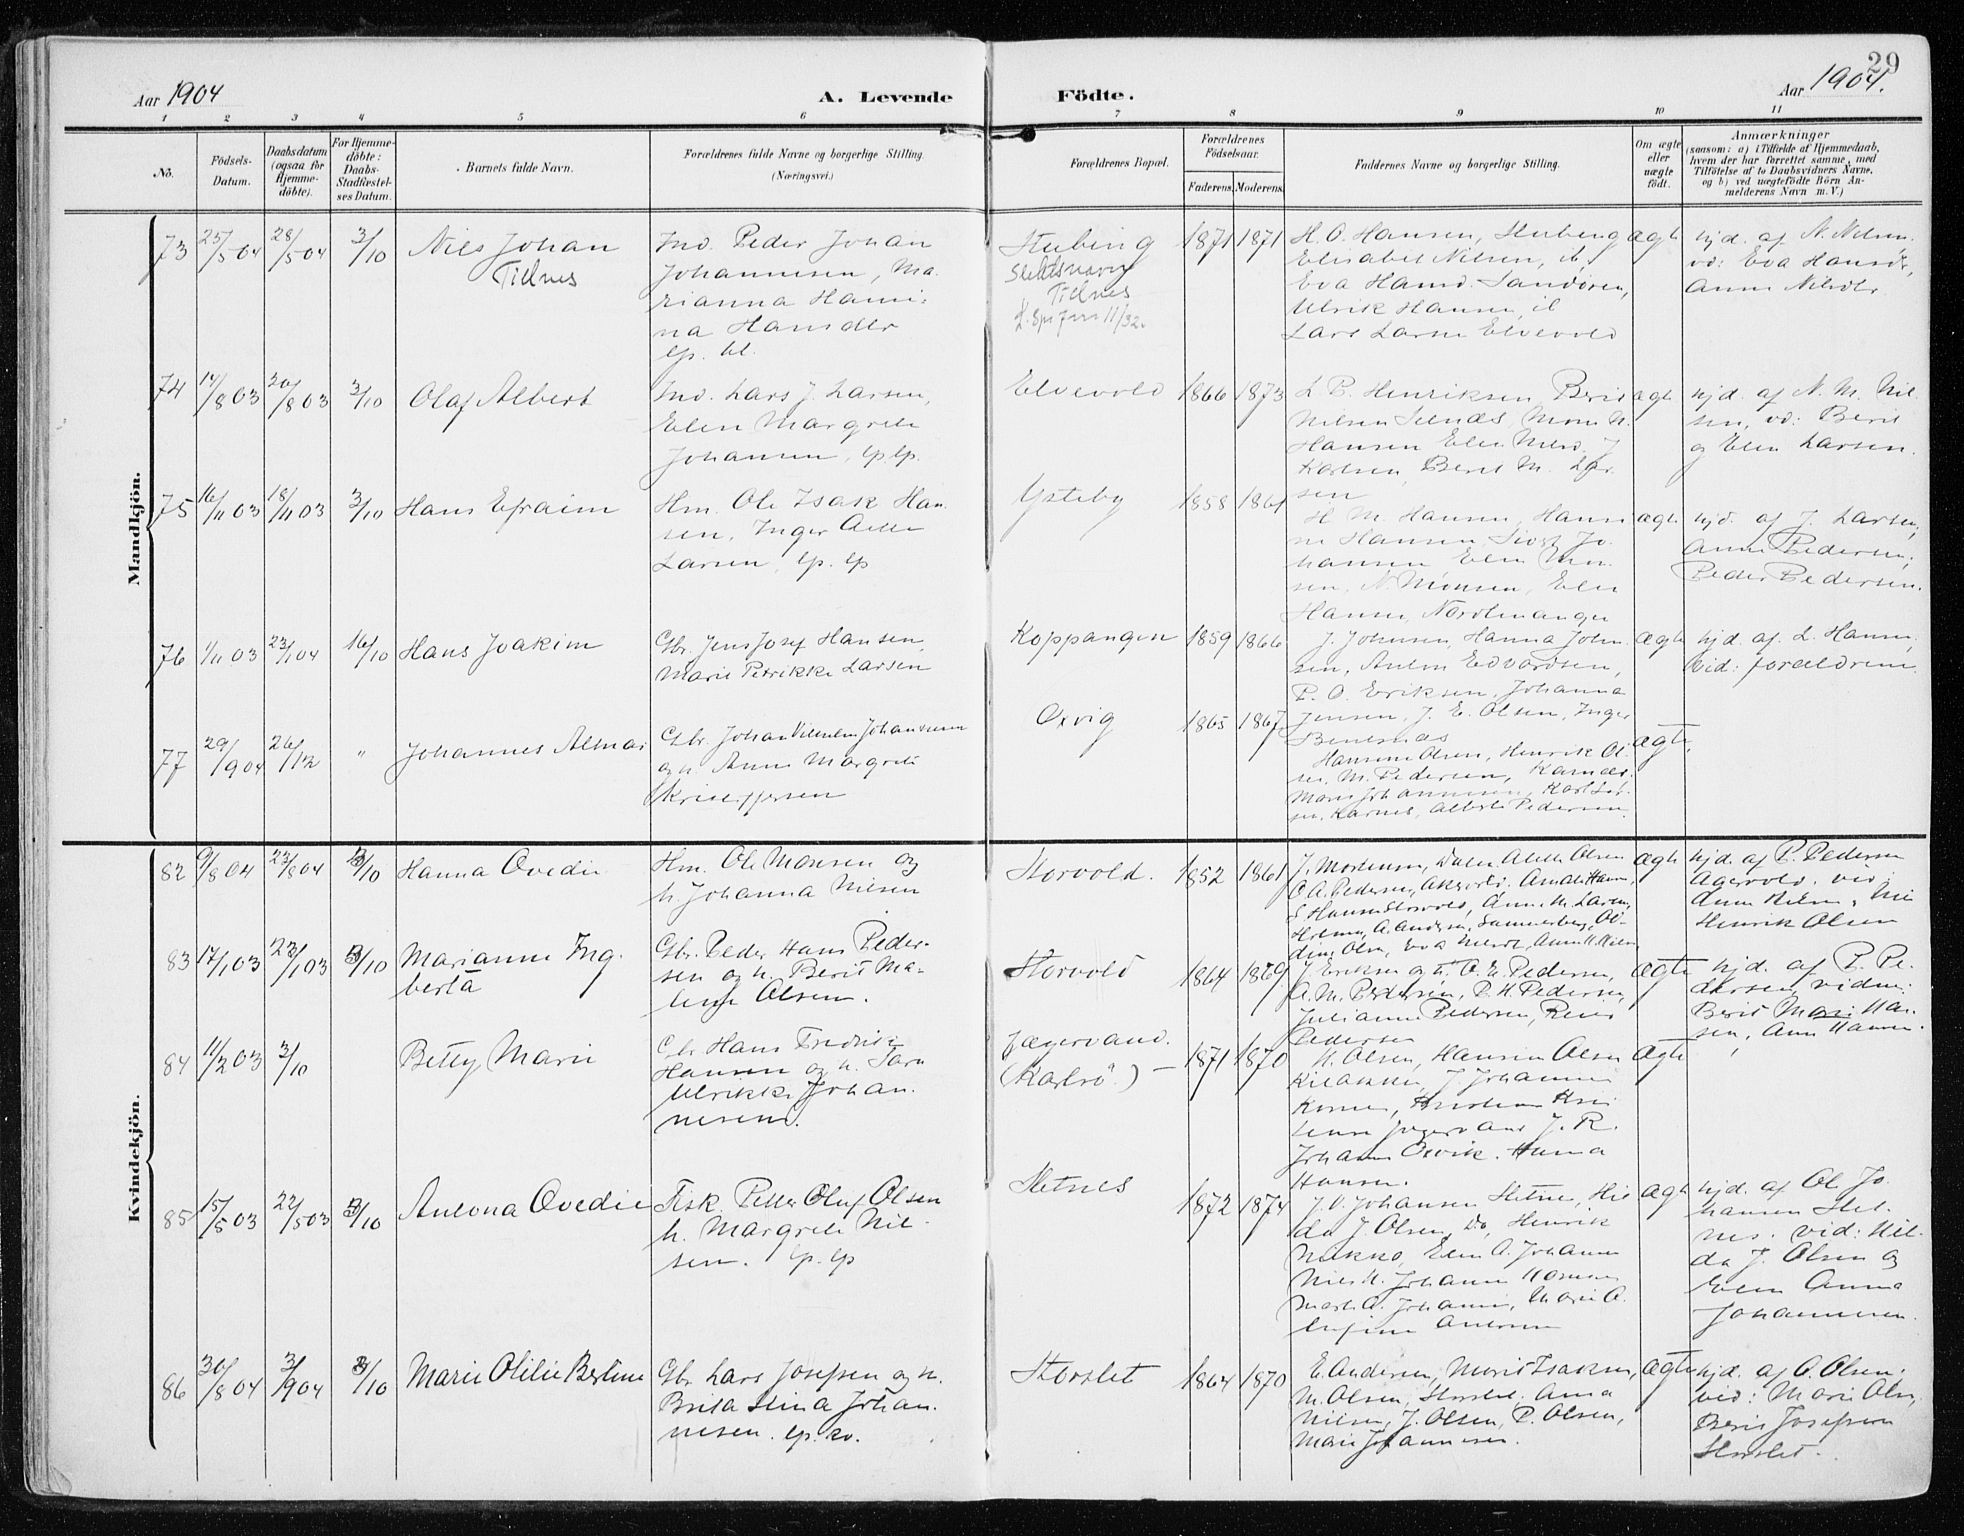 29
Aar 1904
A. Levende
Födte.
Aar 1904.
1 2 3 4 5 6 7 8 9 10 11
No.
Födsels-
Datum.
Daabsdatum
(ogsaa for
Hjemme-
döbte).
For Hjemme-
döbte:
Daabs-
Stadfæstel-
ses Datum.
Barnets fulde Navn.
Forældrenes fulde Navne og borgerlige Stilling.
(Næringsvei.)
Forældrenes Bopæl.
Forældrenes
Födselsaar.
Faderens.
Moderens.
Faddernes Navne og borgerlige Stilling.
Om ægte
eller
uægte
födt.
Anmærkninger
(saasom: a) i Tilfælde af Hjemmedaab,
hvem der har forrettet samme, med
Tilföielse af to Daabsvidners Navne,
og b) ved uægtefödte Börn An-
melderens Navn m. V.)
Mandkjön.
73 25/5 04 28/5 04 3/10 Nils Johan
Tillnes
Ind. Peder Johan
Johannesen, Ma-
rianna Hansi-
na Hansdtr
lp. bl.
Stubeng
Slektsnavn
Tillnes
1871 1871
H. O. Hansen, Stubeng
Elisabet Nilsen, ib,
Eva Hansd. Sandören,
Ulrik Hansen, ib
Lars Larsen Elvevold
ægte
hjd. af N. Nilsen.
vd: Eva Hansdr,
Anne Nilsdtr
74 14/8 03 20/8 03 3/10 Olaf Albert
Ind. Lars J. Larsen,
Elen Margrete
Johansen, lp. lp.
Elvevold
1866 1873
L. P. Henriksen, Berit
Nilsen
Hansen Elen Nilsd, J.
Karlsen, Berit M.
sen
ægte
hjd. af N. M. Nil-
sen, vd: Berit
og Elen Larsen.
75 16/11 03 18/11 03 3/10 Hans Efraim
Hm. Ole Isak Han
sen, Inger
Larsen, lp. lp
Ysteby
1858 1861
H. M. Hansen, Hansi
ne Hansen Jo.
hansen Elen Mon-
sen, N. Monsen, Elen
Hansen Nordlenangen
ægte
hjd. af J. Larsen,
Anne Pedersen,
Peder Pedersen.
76 1/11 03 23/1 04 16/10 Hans Joakim
Gbr. Jens Josef Hansen,
Marie Petrikke Larsen
Koppangen
1859 1866
J. Johnsen, Hanna John
sen, Anton Edvardsen,
P. O. Eriksen, Johanna
Jensen, J. E. Olsen, Inger
ægte
hjd. af. L. Hansen,
vid: forældrene
77 29/9 04 26/12 " Johannes Almar
Gbr. Johan Vilhelm Johannesen
og h. Anne Margrete
Kristoffersen
Oxvig
1865 1867
Hansine Olsen, Henrik Ol-
sen, M. Pedersen,
Marie Johannesen, Karl
Albert Pedersen
ægte.
Kvindekjön.
82 9/8 04 23/8 04 3/10 Hanna Ovedie
Hm. Ole Monsen og
h. Johanna Nilsen
Storvold.
1852 1861
J. Mortensen, Olsen
O A. Pedersen, Anne M. Larsen,
Eva
ægte
hjd. af P. Pedersen
Agervold. vid:
Henrik Olsen
83 17/1 03 23/1 03 3/10 Marianne Ing.
berta
Gbr. Peder Hans Peder-
sen og h. Berit Ma-
Olsen.
Storvold
1864 1869
J. Eriksen og h. O. E. Pedersen,
A. M. Pedersen, P. H. Pedersen,
Julianne Pedersen,
Pedersen
ægte
hjd. af P. Pe-
dersen, vidn:
Berit Marie Han-
sen, Ane Hansen.
84 11/2 03 3/10 Betty Marie
Gbr Hans Fredrik
Hansen og h. Sara
Ulrikke Johan.
nesen.
Jægervand.
(Karlsö.) —
1871 1870
H. Olsen, Hansine Olsen
J. Johannes
Jægervand J. R.
Johansen Oxvik. Hanna
Hansen.
ægte
85 15/5 03 22/5 03 3/10 Antona Ovedie
Fisk. Petter Oluf Olsen
h. Margrete Nil-
sen. lp. lp
Sletnes
1872 1874
J. V. Johansen Sletnes, Hil
da J. Olsen, Do, Henrik
Elen A. Johansen
Nils H. Johansen
Marie A.
ægte
hjd. af Ol Jo.
hansen Slet-
nes. vid: Hil-
da J. Olsen og
Elen Anna
Johannesen.
86 30/8 04 3/9 04 3/10 Marie Otilie Bertine
Gbr. Lars Josefsen og h.
Brita Stina Johan.
nesen. lp. kv.
Storslet
1864 1870
E. Andersen, Marit Isaksen,
M. Olsen, Storslet. Anna
Nilsen, J. Olsen, P. Olsen,
Marie Johannesen.
ægte
hjd. af O. Olsen:
vid: Marie Olsen,
Berit Josefsen
Storslet.